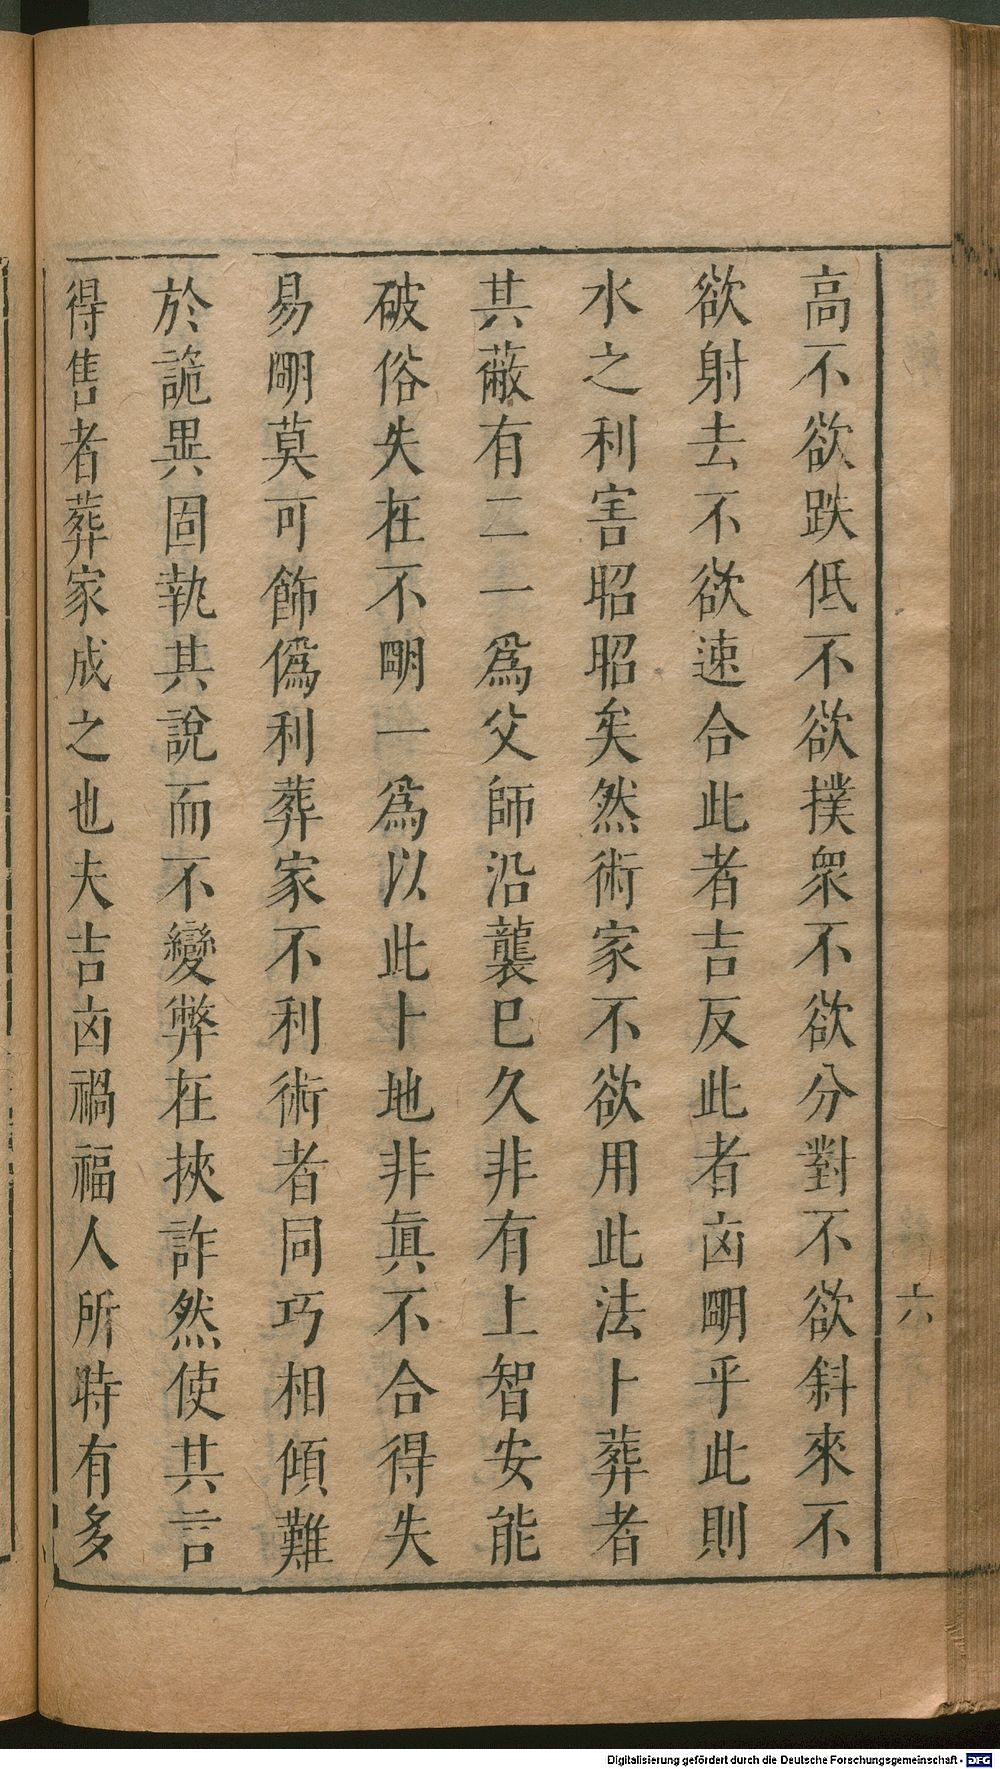 高不欲跌低不欲撲衆不欲分對不欲斜來不
欲射去不欲速合此者吉反此者凶明乎此則
水之利害昭昭矣然術家不欲用此法卜葬者
其蔽有二一爲父師沿襲已久非有上智安能
破俗失在不明一爲以此卜地非眞不合得失
易明莫可飾僞利葬家不利術者同巧相傾難
於詭異固執其說而不變弊在挾詐然使其言
得售者葬家成之也夫吉凶禍福人所時有多
六
Digitalisierung gefördert durch die Deutsche Forschungsgemeinschaft - DFG